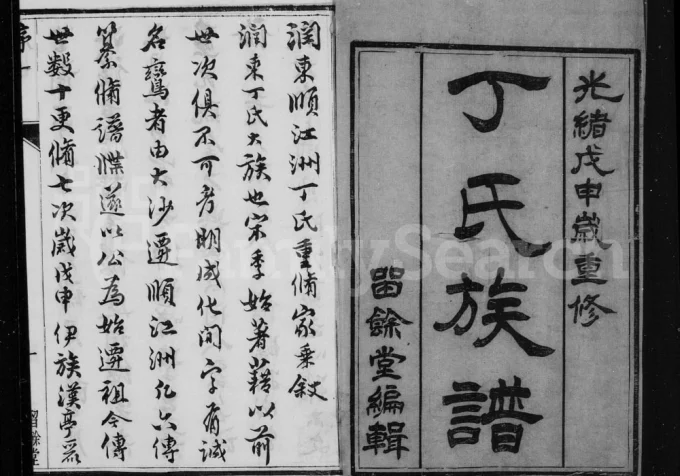 光緒戊申歲重修
丁氏族譜
留餘堂編輯
潤東順江洲丁氏重脩家乘敘
潤東丁氏大族也宋季始著籍以前
世次俱不可考明成化間字有誠
名鸞者由大沙遷順江洲凡六傳
纂脩譜牒遂以公為始遷祖今傳
世數十更脩七次歲戊申伊族漢亭
序一
一
留餘堂
FamilySearch